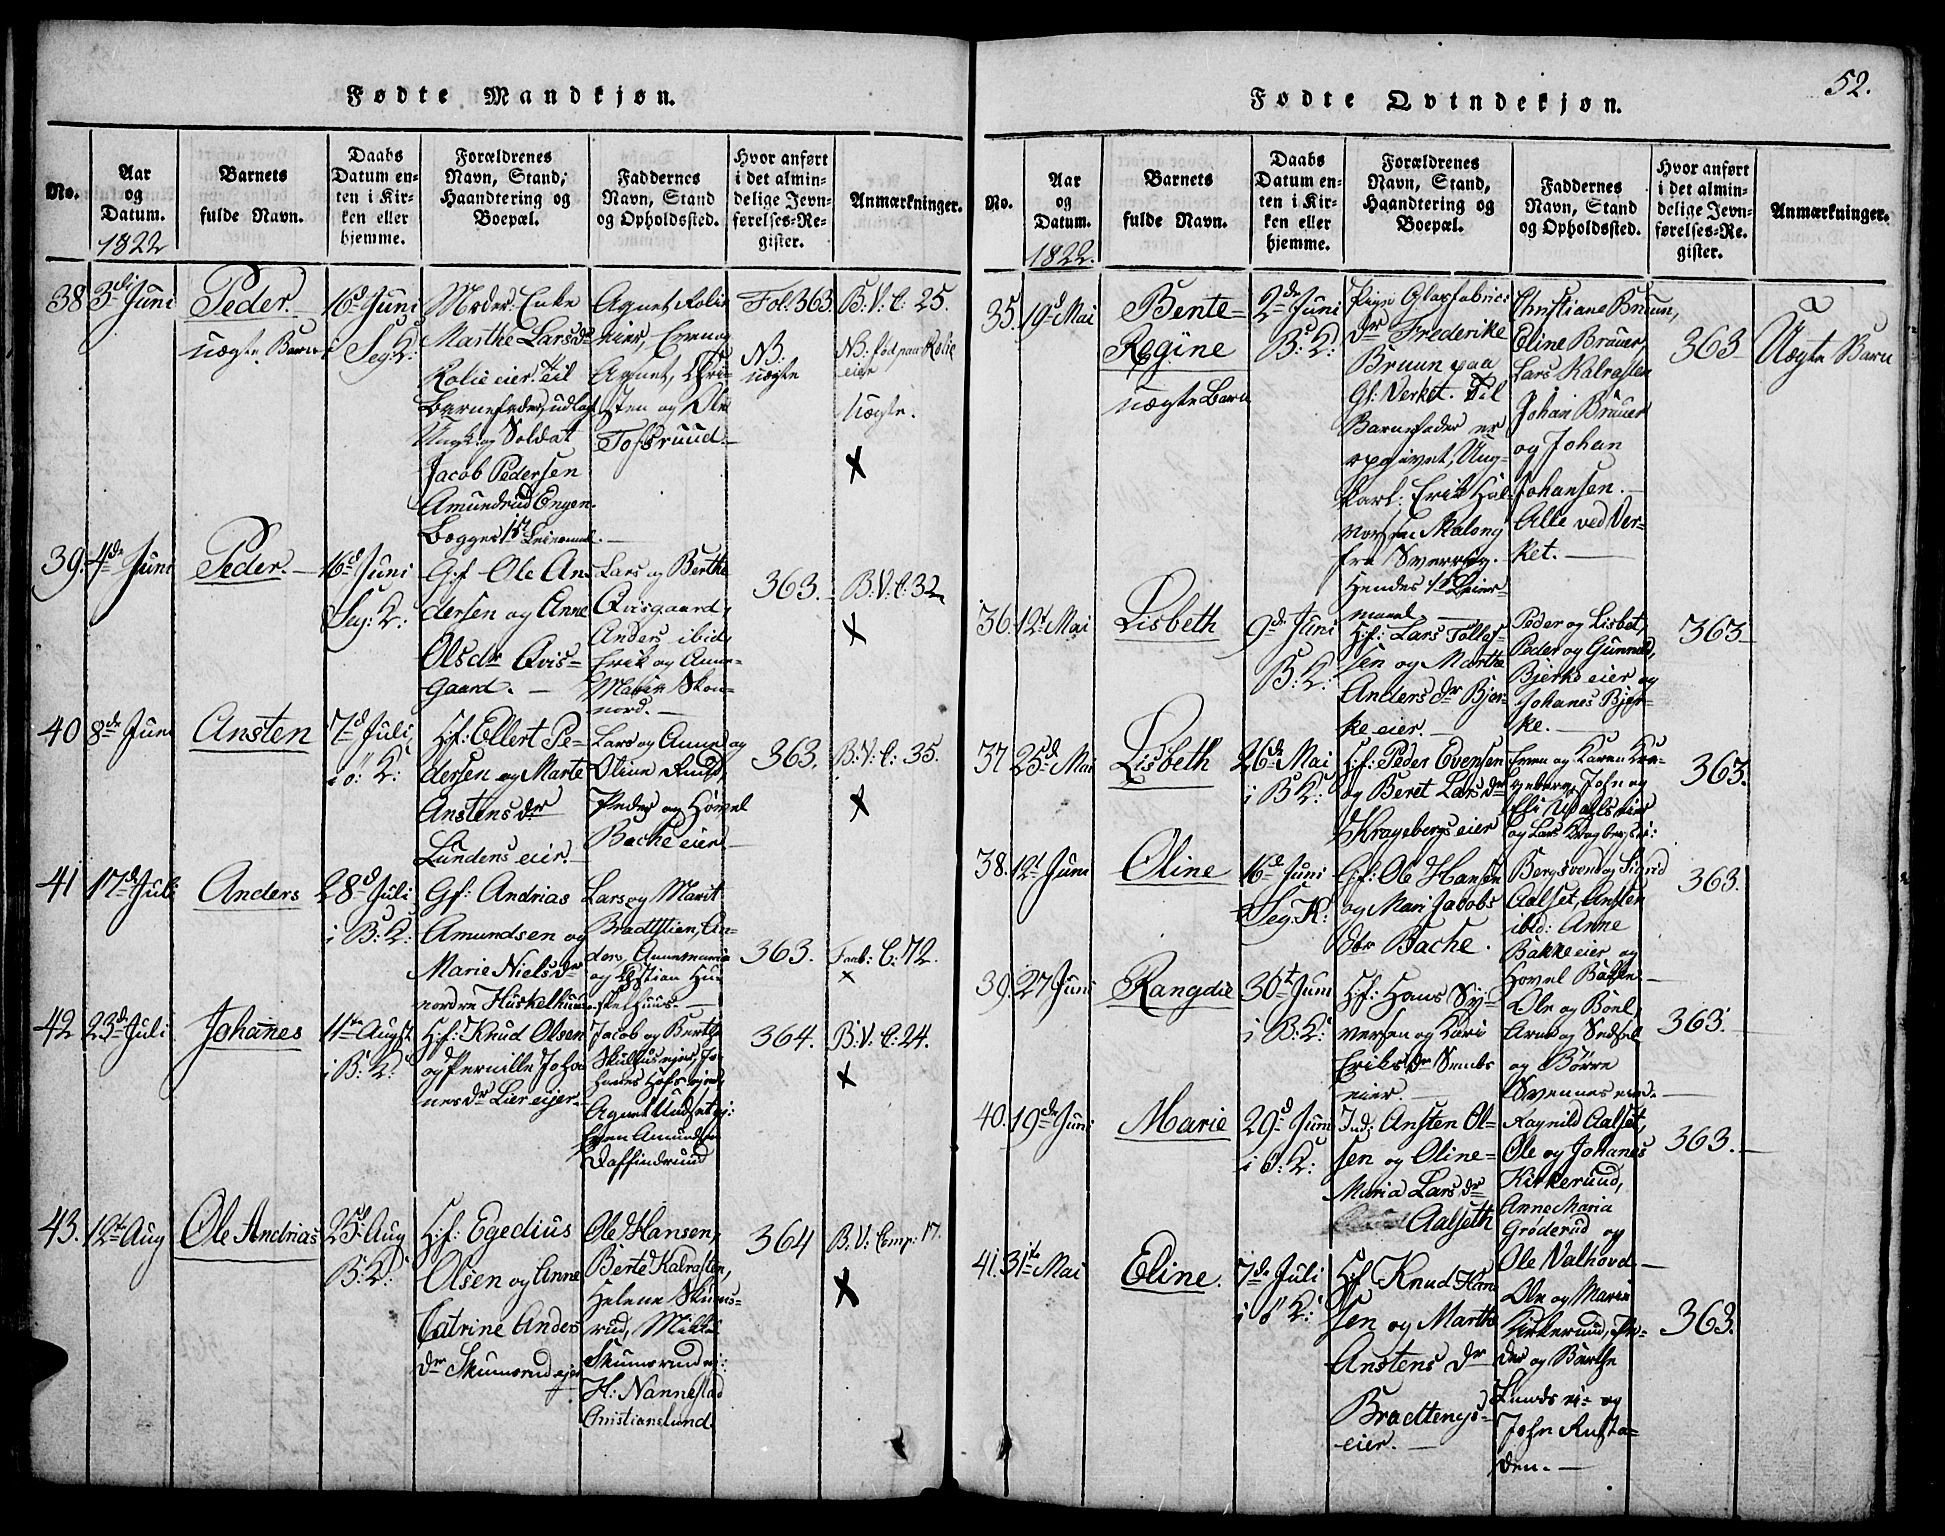 Fødte Mandkjøn.
No.
Aar
og
Datum.
1822
Barnets
fulde Navn.
Daabs
Datum en-
ten i Kir-
ken eller
hjemme.
Forældrenes
Navn, Stand,
Haandtering og
Boepæl.
Faddernes
Navn, Stand
og Opholdssted.
Hvor anført
i det almin-
delige Jevn-
førelses-Re-
gister.
Anmærkninger.
38
3die Juni
Peder.
uægte Barn
16d Juni
Seg: K:
Moder: Enke
Marthe Larsdr
Rolieeier. Til
Barnefader udlagt
Ungk: og Soldat
Jacob Pedersen
Amundrud Engen.
Begges 1ste Leiermaal.
Fol: 363
NB:
uægte
B: V: C: 25.
NB: fød paa Rolie
eier
Uægte.
X
39.
4de Juni
Peder.
16d Juni
Seg: K:
Gf Ole An-
dersen og Anne
Olsdr Qvis-
gaard.
Lars og Berthe
Qvisgaard,
Anders ibid,
Erik og Anne
363.
B: V: C: 32
X
40
8de Juni
Ansten
7d Juli
i ö: K:
Hf: Ellert Pe-
dersen og Marte
Anstensdr
Lundens eier.
Lars og Anne og
Peder og Hövel
Bacheeier
363.
B: V: C: 35.
X
41
17d Juli
Anders
28d Juli
i B: K:
Gf: Andrias
Amundsen og
Marie Nielsdr
nordre Huskelhuus
Lars og Marit
363.
C: 72.
x
42
23d Juli
Johanes
11te August
i B: K:
Hf: Knud Olsen
og Pernille Joha-
nesdr Liereier
Jacob og Berthe
Even Amundsen
Daffindrund
364.
B: V: C: 24.
X
43.
12te Aug
Ole Andrias
25d Aug
B: K:
Hf: Egedius
Olsen og Anne
Catrine Anders
dr Skumsrud eier
Ole Hansen,
Berte Kalrasten,
Helene Skums-
rud, Mikkel
Skumsrudei:
H: Nannestad
Cristianslund
364
B: V: Comp: 17.
X
52.
Fødte Qvindekjøn.
No.
Aar
og
Datum.
1822.
Barnets
fulde Navn.
Daabs
Datum en-
ten i Kir-
ken eller
hjemme.
Forældrenes
Navn, Stand,
Haandtering og
Boepæl.
Faddernes
Navn, Stand
og Opholdssted.
Hvor anført
i det almin-
delige Jevn-
førelses-Re-
gister.
Anmærkninger.
35.
19d Mai
Bente-
Regine
uægte Barn
2de Juni
B: K:
Pige
Frederike
Bruun paa
Gl: Verket. Til
Barnefader er
opgivet, Ung-
karl: Erik Hal-
vorsen Malong
fra Sverrig.
Hendes 1ste Leier-
maal
Christiane Bruun,
Eline Brauer,
Lars Kalrasten
Johan Brauer
og Johan
Johansen.
Alle ved Ver-
ket.
363
Uægte Barn
36.
12t Mai
Lisbeth
9de Juni
B: K:
Hf: Lars Tollef-
sen og Marthe
Andersdr Bjer-
keeier.
Peder og Lisbet,
Peder og Gunnild,
Bjerkeeier og
Johanes Bjer-
ke.
363
37
25d Mai
Lisbeth
26de Mai
i B K:
Hf: Peder Evensen
og Beret Larsdr
Kragebergseier
Even og Karen
John og
363.
38.
12t Juni
Oline
16de Juni
Seg: K:
Gf: Ole Hansen
og Mari Jacobs
dtr Bache.
Bergsvend og Sigrid
Aalset, Ansten
ibid: Anne
Bakkeeier og
Hovel Bakke
363.
39.
27 Juni
Rangdie
30t Juni
i B: K:
Hf: Hans Sy-
versen og Kari
Eriksdr
eier.
Ole og Böel,
og Börre
363.
40.
19de Juni
Marie
29d Juni
i ö: K:
Ind: Ansten Ol-
sen og Oline-
Maria Larsdr
Aalseth
Ragnild Aalset,
Ole og Johanes
Kirkerund,
Anne Maria
Gröderud og
Ole Valhovd.
363.
41.
31te Mai
Eline.
7de Juli
i ö K:
Hf Knud Han
sen og Marthe
Anstens dr
Bradtengs-
eier.
Ole og Marie
Kirkerund, Pe-
der og Berthe
Lunds ei- og
John Rusta-
den.
363.